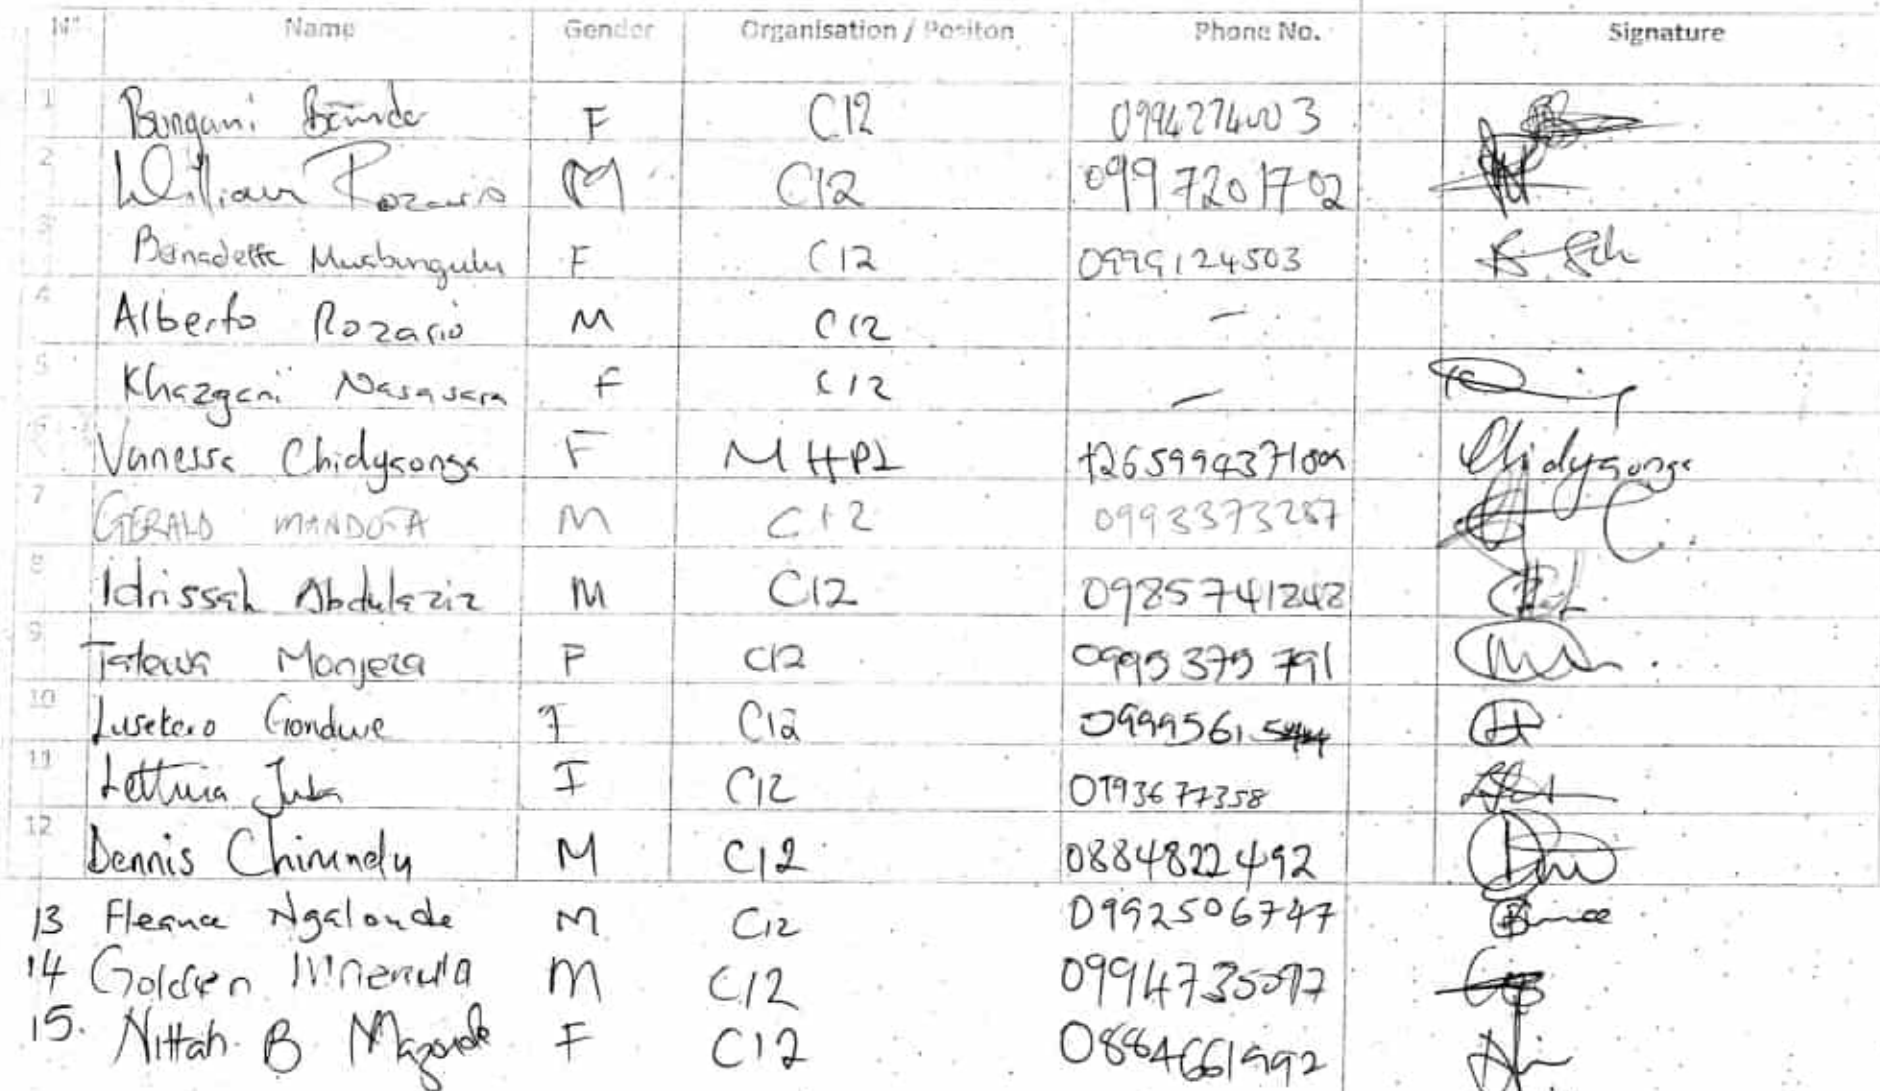 N° Name Gender Organisation / Positon Phone No. Signature
1 Bungani Banda F C12 0994274003
2 William Rozario M C12 0997201702
3 Benadette Mwabungulu F C12 0999124503
4 Alberto Rozario M C12 –
5 Khazgani Nasasara F C12 –
6 Vanessa Chidyaonga F MHPL Chidyaonga
7 GERALD M C12 0993373287
8 Idrissah Abdulaziz M C12 0985741242
9 Monjeza F C12 0995375791
10 Lusekero Gondwe F C12 0999561
11 Juba F C12 0993677358
12 Dennis Chirundu M C12 0884822492
13 Ngalande M C12 0992506747
14 Golden M C12
15. Nittah B F C12 0884661992